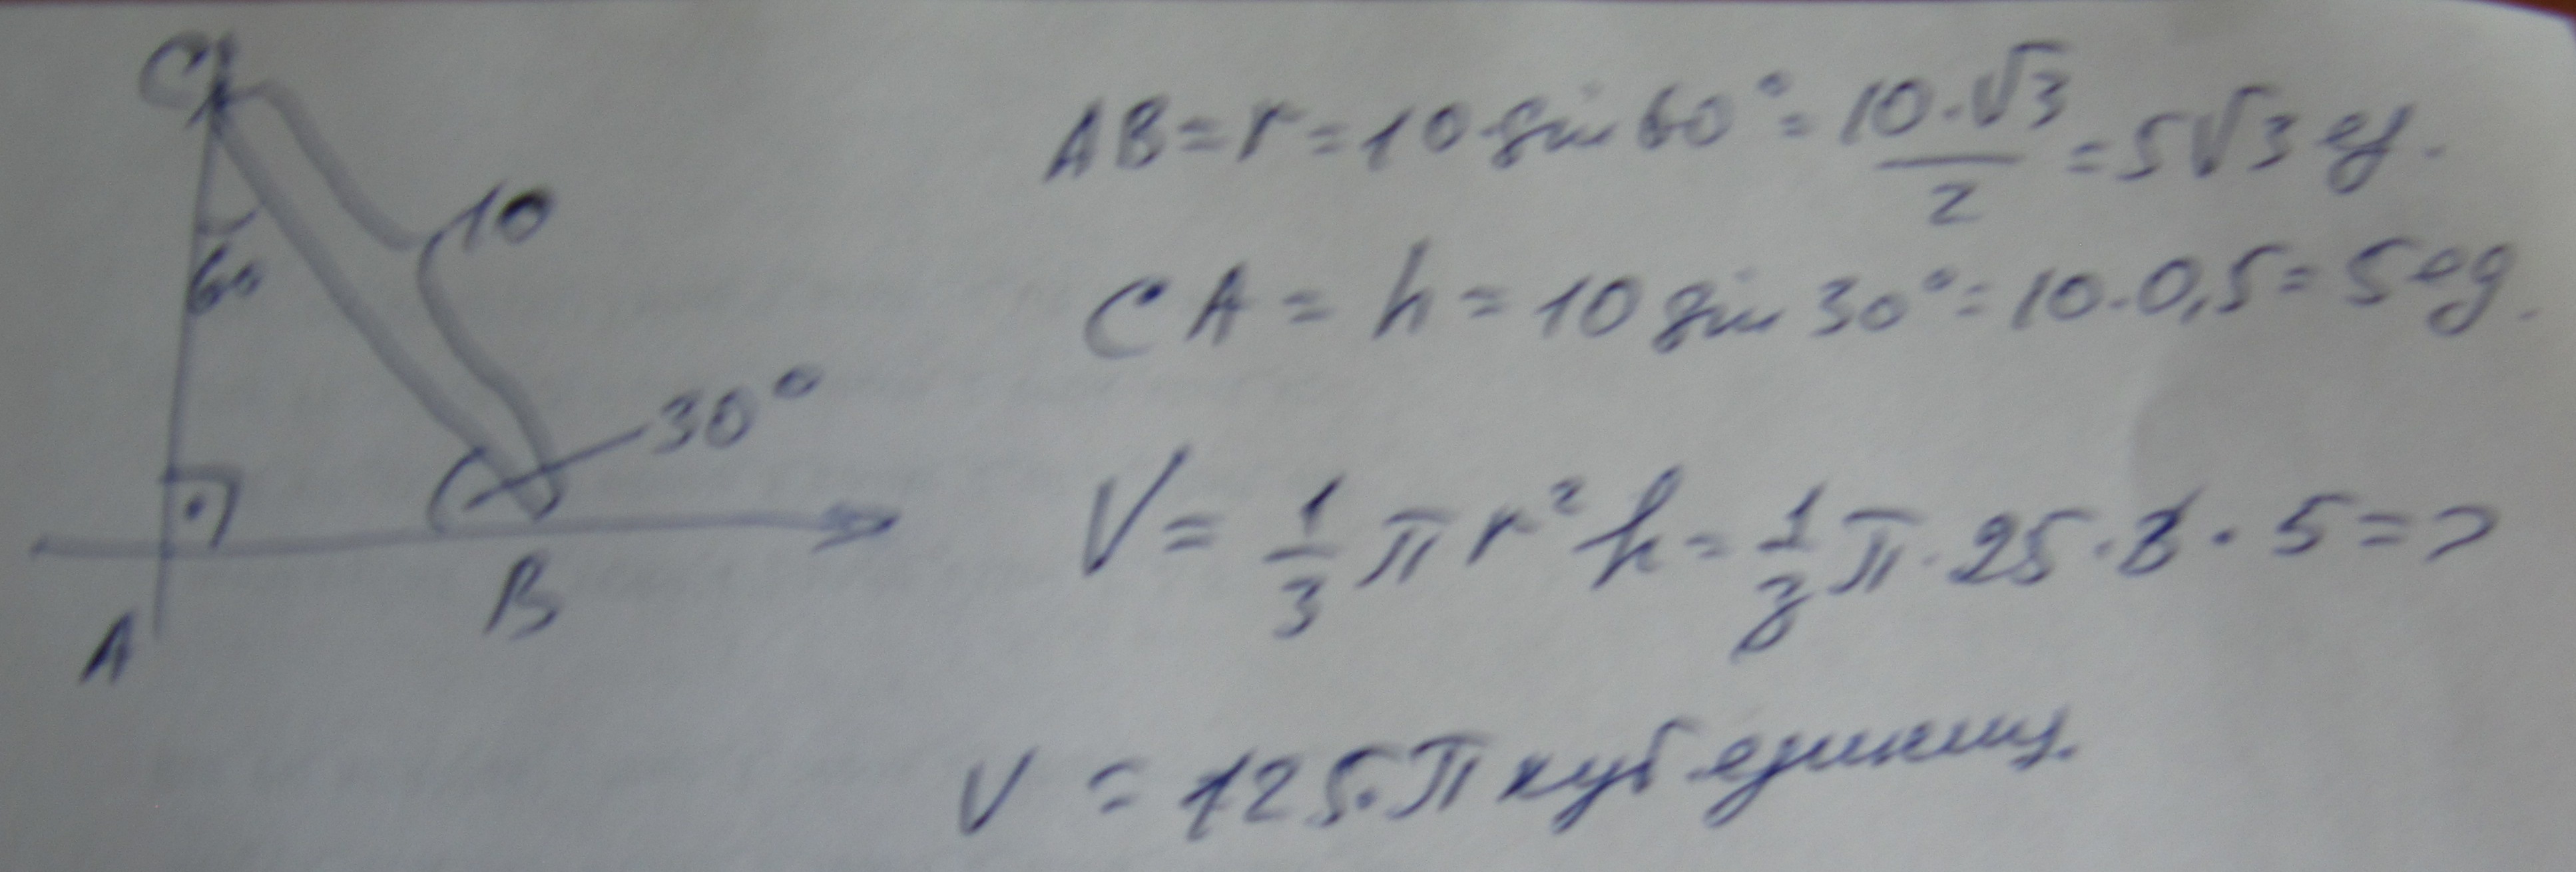 C
10
60
30°
A
B
AB = r = 10 sin 60° = 10·√3/2 = 5√3 ед.
CA = h = 10 sin 30° = 10·0,5 = 5 ед.
V = 1/3 π r² h = 1/3 π · 25 · 3 · 5 =>
V = 125·π куб единиц